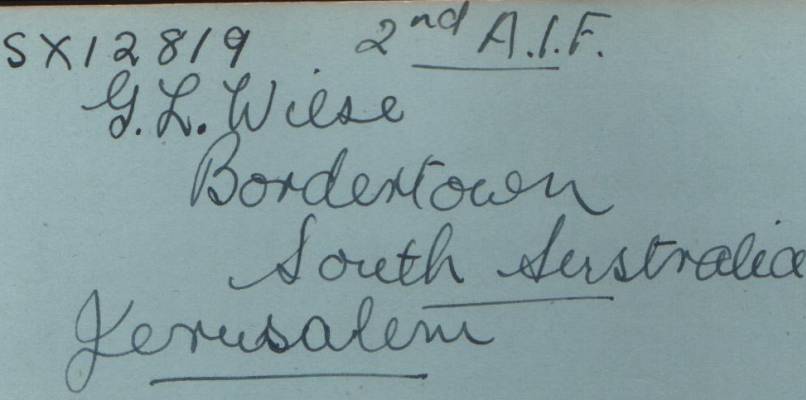 SX12819 2nd A.I.F.
G.L. Wiese
Bordertown
South Australia
Jerusalem